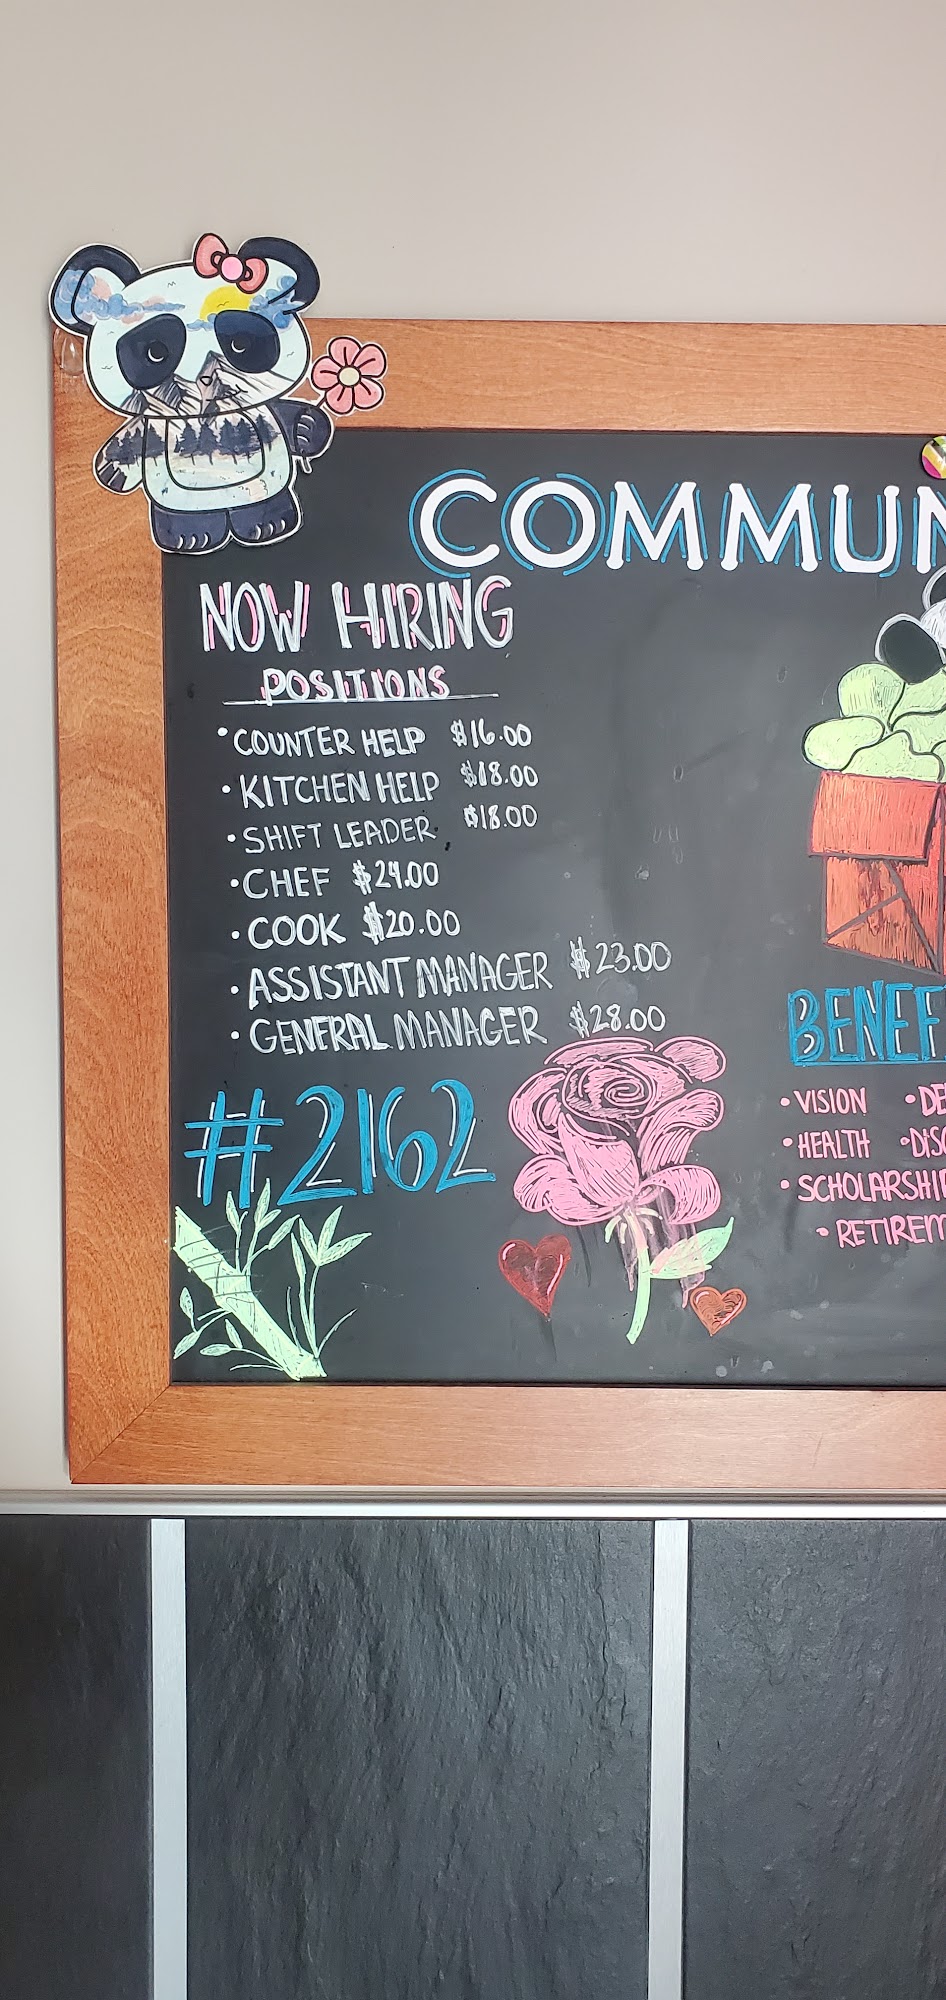 COMMUN
NOW HIRING
POSITIONS
• COUNTER HELP $16.00
• KITCHEN HELP $18.00
• SHIFT LEADER $18.00
• CHEF $24.00
• COOK $20.00
• ASSISTANT MANAGER $23.00
• GENERAL MANAGER $28.00
#2162
BENEF
• VISION • DE
• HEALTH • DISC
• SCHOLARSHIP
• RETIREM